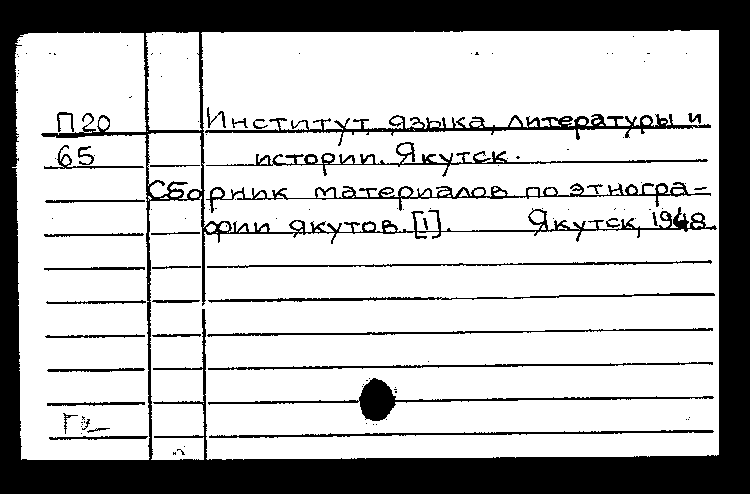 П20 Институт языка, литературы и
65 истории. Якутск.
Сборник материалов по этногра-
фии якутов. [1]. Якутск, 1948.